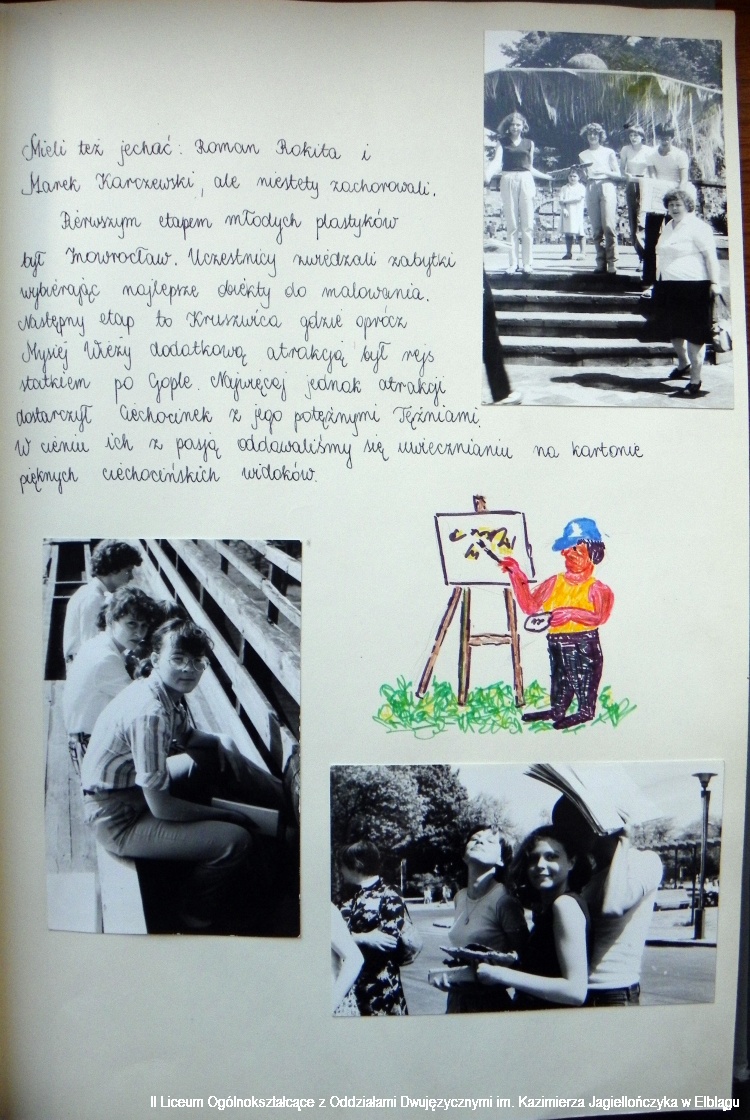 Mieli też jechać: Roman Rokita i
Marek Karczewski, ale niestety zachorowali.
Pierwszym etapem młodych plastyków
był Inowrocław. Uczestnicy zwiedzali zabytki
wybierając najlepsze obiekty do malowania.
Następny etap to Kruszwica gdzie oprócz
Mysiej Wieży dodatkową atrakcją był rejs
statkiem po Gople. Najwięcej jednak atrakcji
dostarczył Ciechocinek z jego potężnymi Tężniami.
W cieniu ich z pasją oddawaliśmy się uwiecznianiu na kartonie
pięknych ciechocińskich widoków.
II Liceum Ogólnokształcące z Oddziałami Dwujęzycznymi im. Kazimierza Jagiellończyka w Elblągu